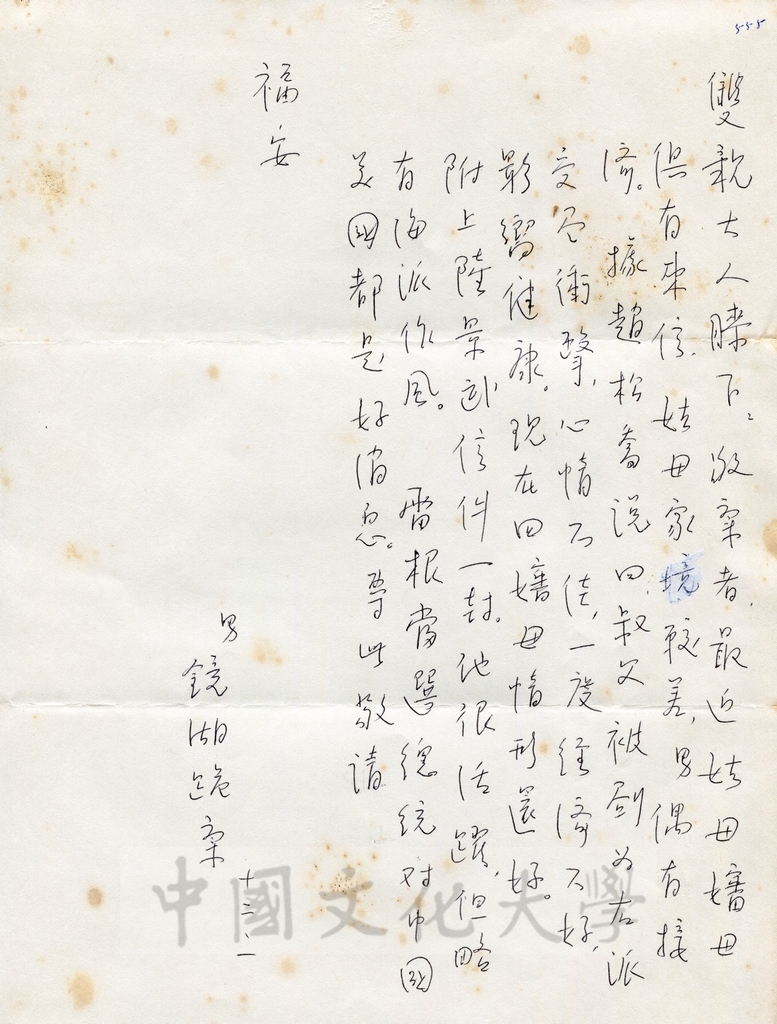 555
雙親大人膝下：敬稟者，最近姑母嬸母
俱有來信，姑母家境較差，男偶有接
濟。據趙松喬說四叔父被劃為右派
受盡衝擊，心情不佳，一度經濟不好，
影響健康。現在四嬸母情形還好。
附上陸景武信件一封。他很活躍，但略
有海派作風。 雷根當選總統對中國
美國都是好消息。專此敬請
福安
男
鏡湖跪稟
十二、一
中國文化大學